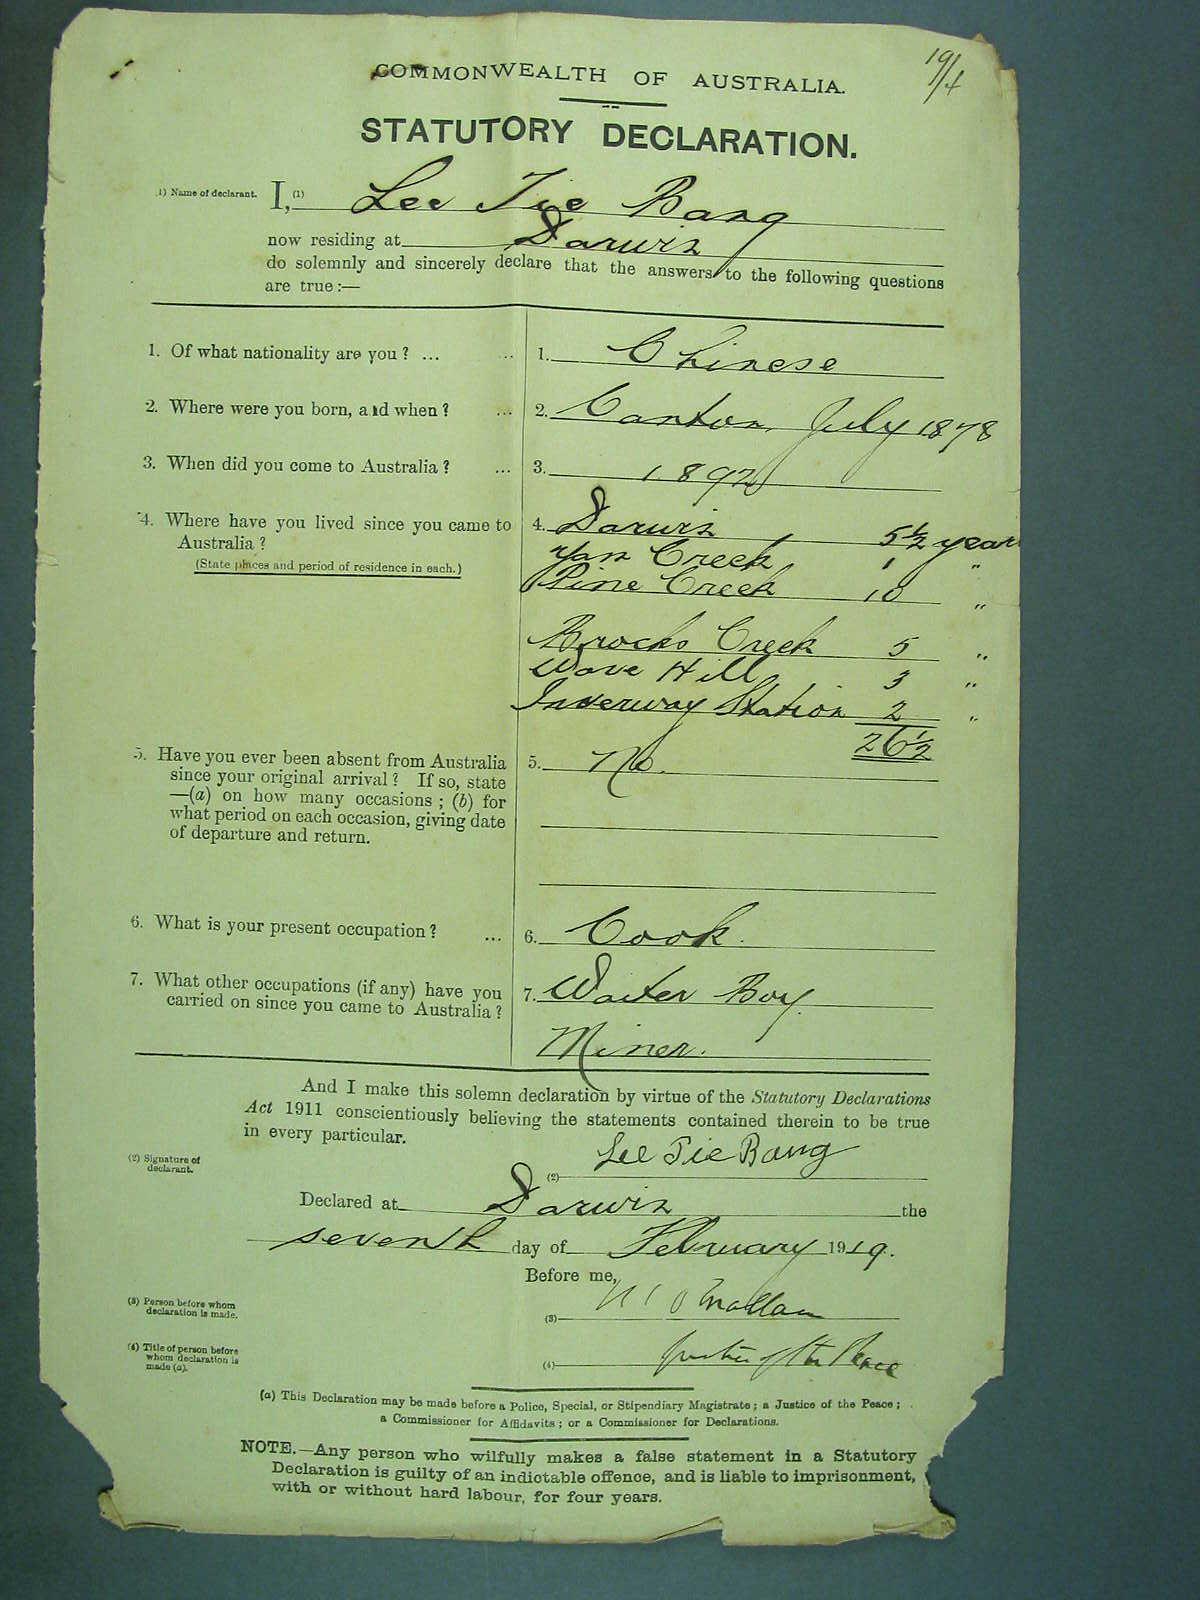 19/4
COMMONWEALTH OF AUSTRALIA.
STATUTORY DECLARATION.
1) Name of declarant. I, (1) Lee Tie Bang
now residing at Darwin
do solemnly and sincerely declare that the answers to the following questions
are true:—
1. Of what nationality are you? ... ... 1. Chinese
2. Where were you born, and when? ... 2. Canton, July 1878
3. When did you come to Australia? ... 3. 1892
4. Where have you lived since you came to 4. Darwin 5½ years
Australia? Yam Creek 1 "
(State places and period of residence in each.) Pine Creek 10 "
Brocks Creek 5 "
Wave Hill 3 "
Inverway Station 2 "
26½
5. Have you ever been absent from Australia 5. No.
since your original arrival? If so, state
—(a) on how many occasions; (b) for
what period on each occasion, giving date
of departure and return.
6. What is your present occupation? ... 6. Cook.
7. What other occupations (if any) have you 7. Waiter Boy.
carried on since you came to Australia?
Miner.
And I make this solemn declaration by virtue of the Statutory Declarations
Act 1911 conscientiously believing the statements contained therein to be true
in every particular.
(2) Signature of declarant. (2) Lee Tie Bang
Declared at Darwin the
seventh day of February 1919.
Before me,
(3) Person before whom
declaration is made. (3) Mallam
(4) Title of person before
whom declaration is
made (a). (4) Justice of the Peace
(a) This Declaration may be made before a Police, Special, or Stipendiary Magistrate; a Justice of the Peace;
a Commissioner for Affidavits; or a Commissioner for Declarations.
NOTE.—Any person who wilfully makes a false statement in a Statutory
Declaration is guilty of an indictable offence, and is liable to imprisonment,
with or without hard labour, for four years.